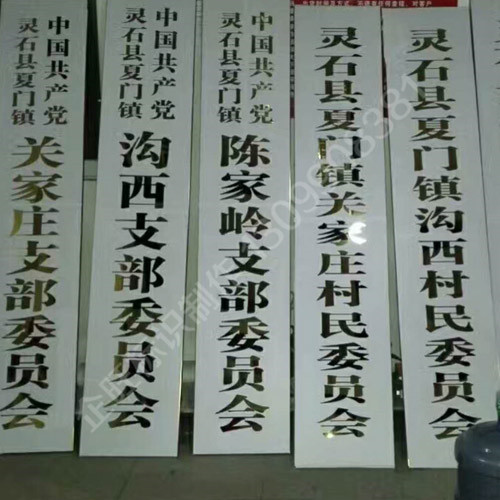 中国共产党
灵石县夏门镇
关家庄支部委员会
中国共产党
灵石县夏门镇
沟西支部委员会
中国共产党
灵石县夏门镇
陈家岭支部委员会
灵石县夏门镇关家庄村民委员会
灵石县夏门镇沟西村民委员会